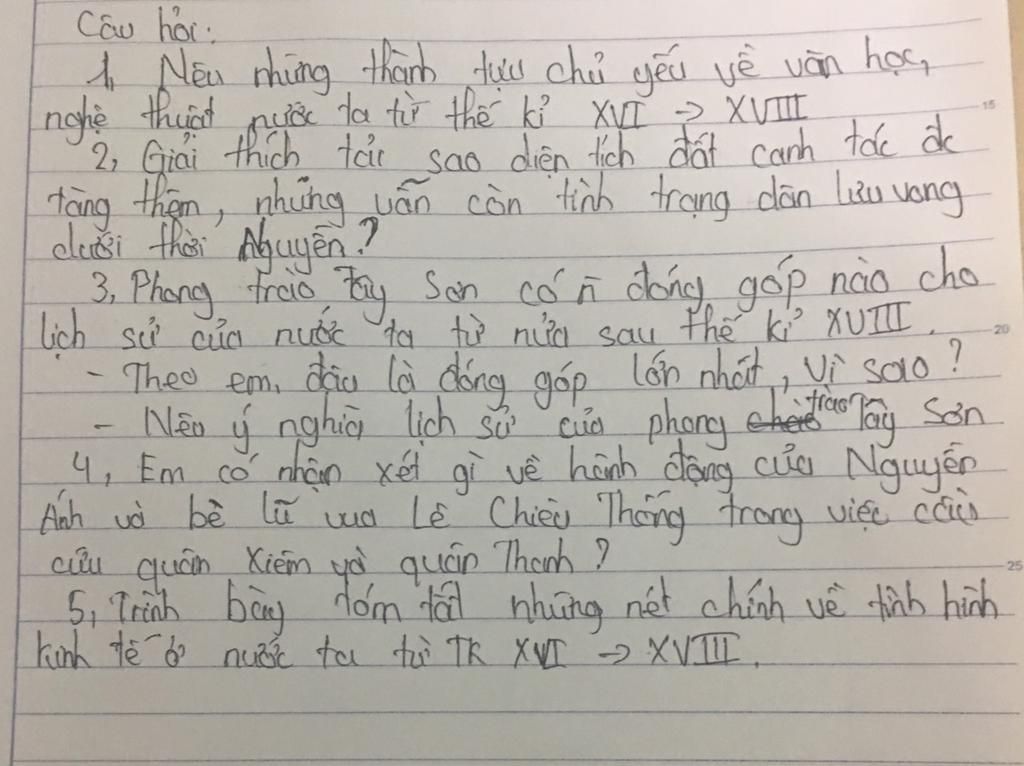 Câu hỏi:
1, Nêu những thành tựu chủ yếu về văn học,
nghệ thuật nước ta từ thế kỉ XVI → XVIII
15
2, Giải thích tại sao diện tích đất canh tác đc
tăng thêm, nhưng vẫn còn tình trạng dân lưu vong
dưới thời Nguyễn?
3, Phong trào Tây Sơn có n̄ đóng góp nào cho
lịch sử của nước ta từ nửa sau thế kỉ XVIII.
20
- Theo em, đâu là đóng góp lớn nhất, Vì sao?
- Nêu ý nghĩa lịch sử của phong trào Tây Sơn
4, Em có nhận xét gì về hành động của Nguyễn
Ánh và bè lũ vua Lê Chiêu Thống trong việc cầu
cứu quân Xiêm và quân Thanh?
25
5, Trình bày tóm tắt những nét chính về tình hình
kinh tế ở nước ta từ TK XVI → XVIII.